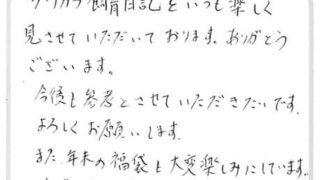 飼育日記をいつも楽しく
見させていただいております。ありがとう
ございます。
今後も参考とさせていただきたいです。
よろしくお願いします。
また、年末の福袋も大変楽しみにしています。